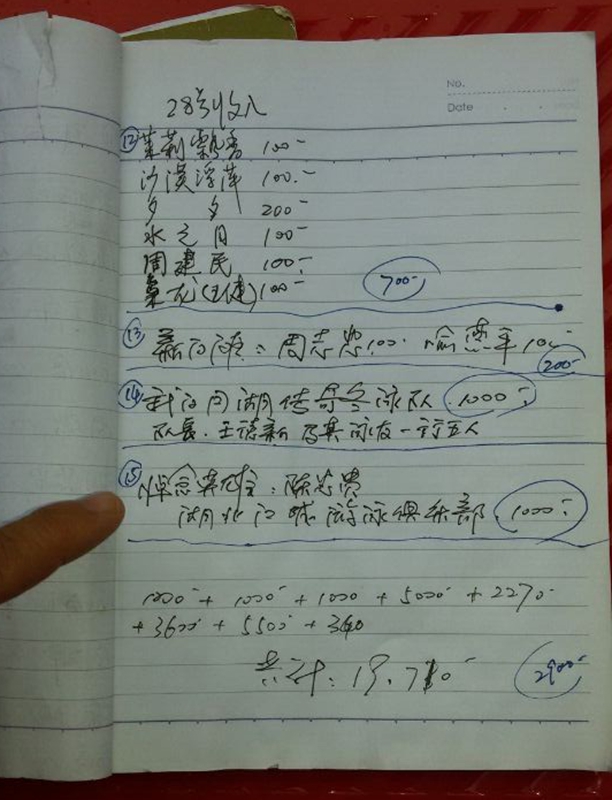 No.
Date
28号收入
⑫ 茉莉飘香 100-
沙漠浮萍 100.-
夕 夕 200-
水之月 100-
周建民 100.-
(王健) 100-
700-
⑬ 周志忠 100. 喻 平 100
200-
⑭ 月湖传奇冬泳队 1000-
队长. 王德新 及其泳友一行五人
⑮ 悼念 : 陈志贵
湖北江城游泳俱乐部. 1000-
1000- + 1000 + 5000- + 2270-
+ 3600- + 5500- + 340
共计: 19.710-
2900-